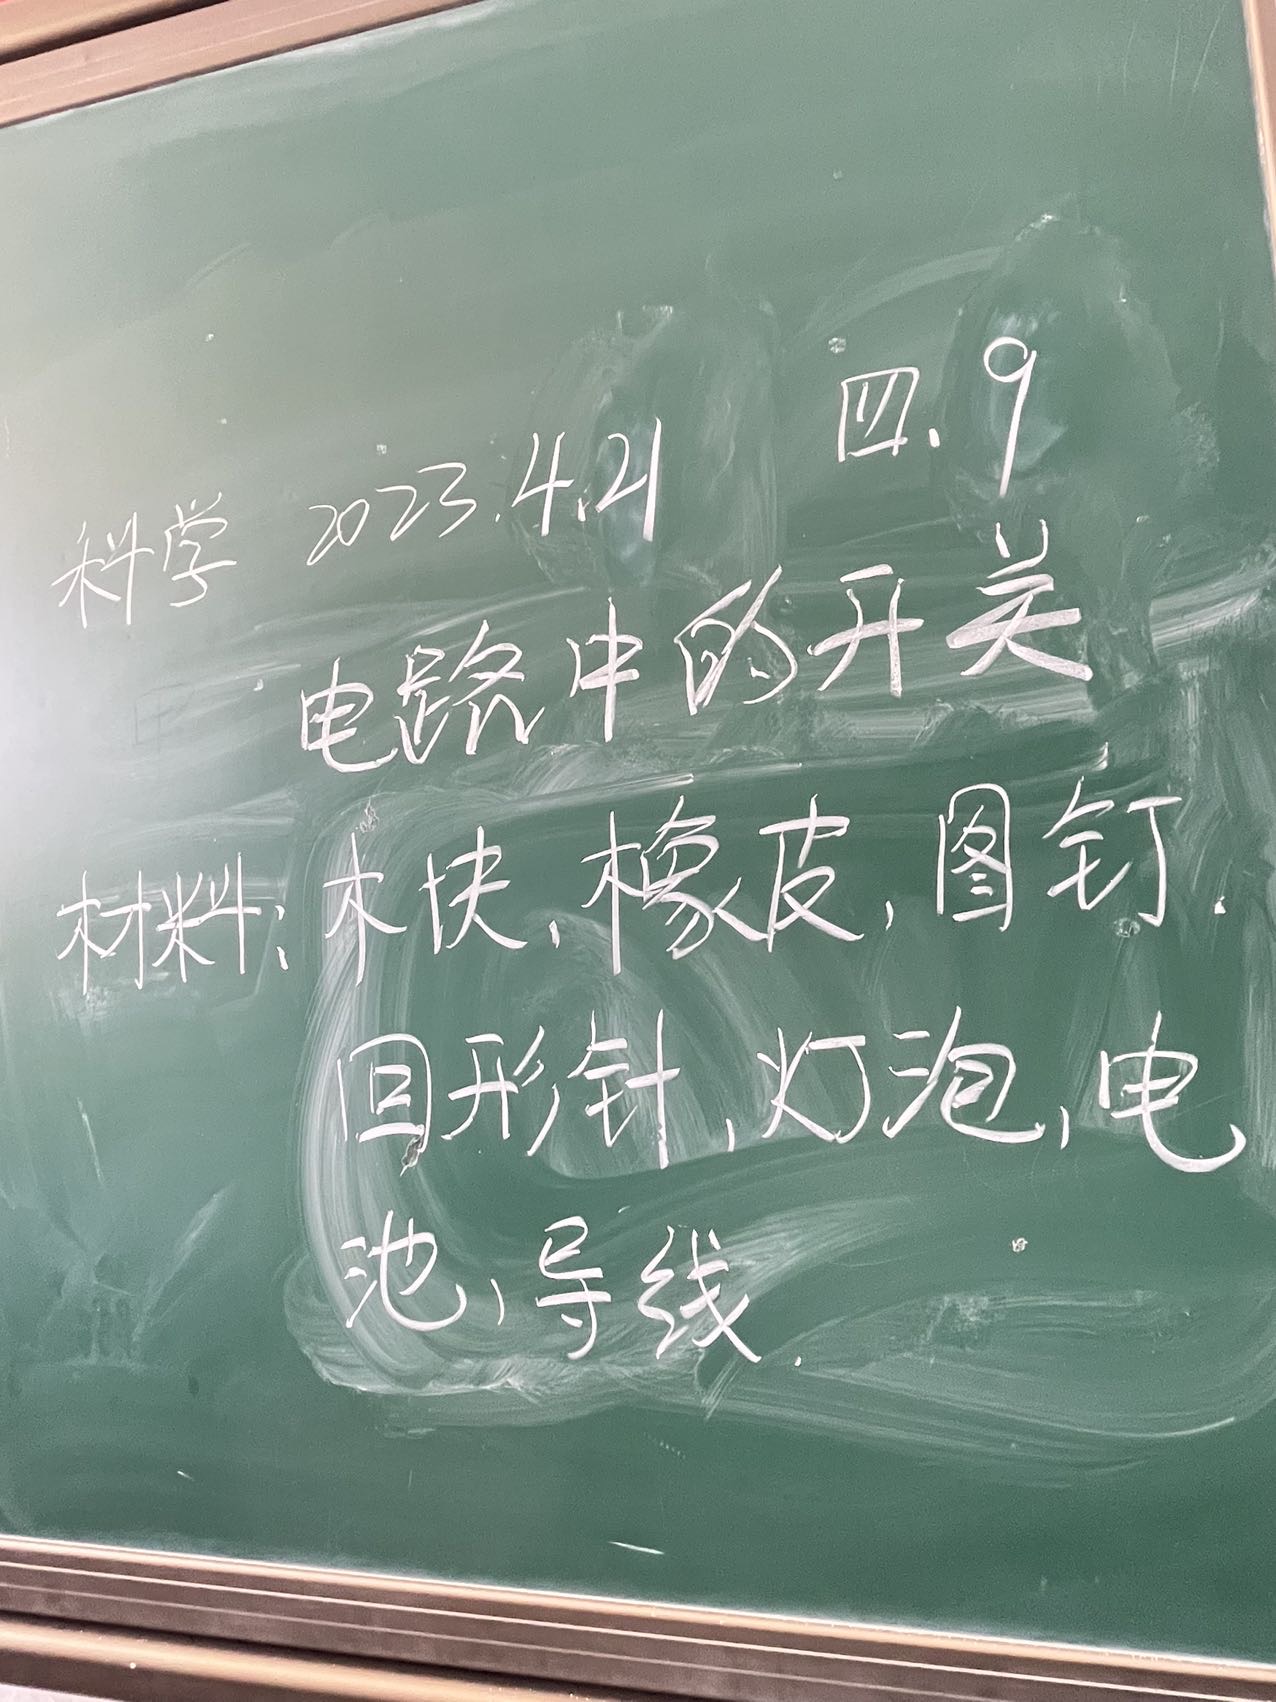 科学 2023.4.21 四.9
电路中的开关
材料:木块,橡皮,图钉.
回形针,灯泡,电
池,导线.